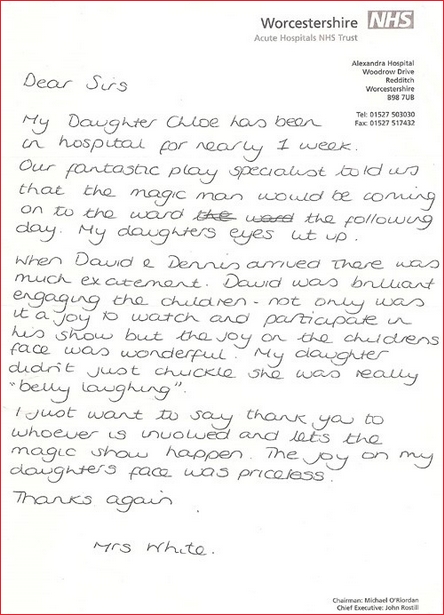 Worcestershire NHS
Acute Hospitals NHS Trust
Alexandra Hospital
Woodrow Drive
Redditch
Worcestershire
B98 7UB
Tel: 01527 503030
Fax: 01527 517432
Dear Sirs
My Daughter Chloe has been
in hospital for nearly 1 week.
Our fantastic play specialist told us
that the magic man would be coming
on to the ward the ward the following
day. My daughters eyes lit up.
When David & Dennis arrived there was
much excitement. David was brilliant
engaging the children - not only was
it a joy to watch and participate in
his show but the joy on the childrens
face was wonderful. My daughter
didn't just chuckle she was really
"belly laughing".
I just want to say thank you to
whoever is involved and lets the
magic show happen. The joy on my
daughters face was priceless.
Thanks again
Mrs White.
Chairman: Michael O'Riordan
Chief Executive: John Rostill